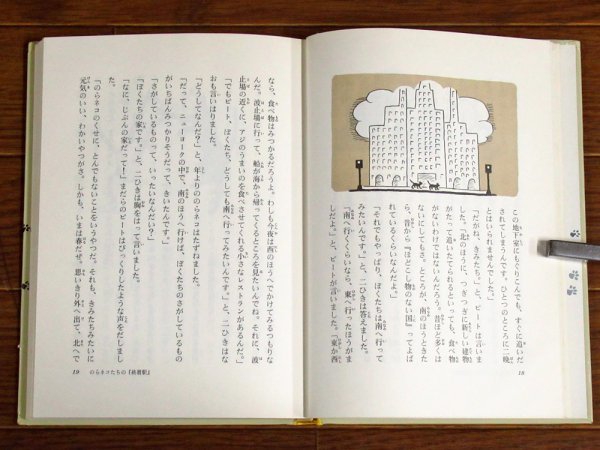 この地下室にもぐりこんで、すぐに追いだ
されてしまうんです。ひとつのところに二晩
とはいられませんでした。」
「だがね、きみたち。」と、ピートは言いま
した。「北のほうに、つぎつぎに新しい建物
がたって追いたてられるといっても、食べ物
がないわけではないんだろう。昔ほど多くは
ないにしてもさ。ところが、南のほうときた
ら、昔から『ほどこし物のない国』ってよば
れているくらいなんだよ。」
「それでもやっぱり、ぼくたちは南へ行って
みたいんです。」と、二ひきは答えました。
「南へ行くくらいなら、東へ行ったほうがま
しだよ。」と、ピートが言いました。「東か西
18
なら、食べ物はみつかるだろうよ。わしも今夜は西のほうへでかけてみるつもりな
んだ。波止場に行って、船が海から帰ってくるところを見たいんでね。それに、波
止場の近くに、アジのうまいのを食べさせてくれる小さなレストランがあるんだ。」
「でもピート、ぼくたち、どうしても南へ行ってみたいんです。」と、二ひきはな
おも言いはりました。
「どうしてなんだ?」と、年よりののらネコはたずねました。
「だって、ニューヨークの中で、南のほうへ行けば、ぼくたちのさがしているもの
がいちばんみつかりそうだって、きいたんです。」
「さがしているものって、いったいなんだい?」
「ぼくたちの家です。」と、二ひきは胸をはって言いました。
「なに、じぶんの家だって!」まだらのピートはびっくりしたような声をだしました。
「のらネコのくせに、とんでもないことをいうやつだ。それも、きみたちみたいに
元気のいい、わかいやつがさ。しかも、いまは春だぜ。思いきり外へ出て、北へで
19 のらネコたちの『終着駅』